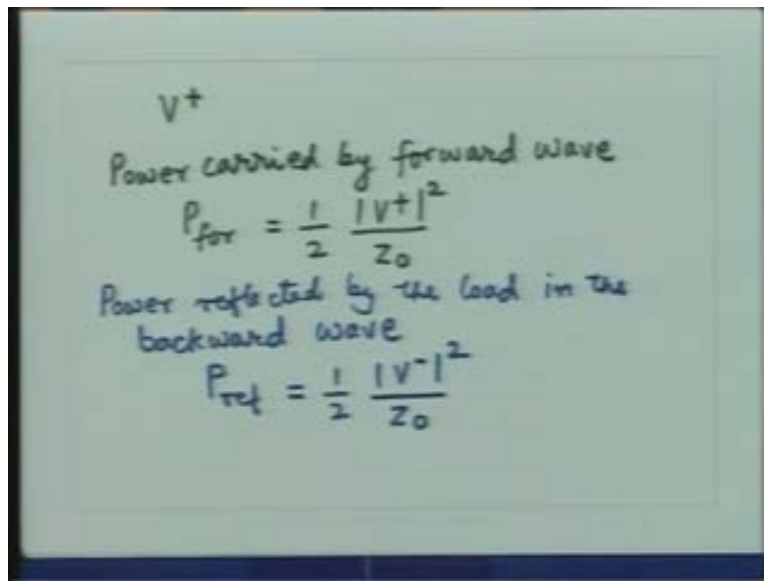 V+
Power carried by forward wave
P_for = 1/2 |V+|²/Z₀
Power reflected by the load in the
backward wave
P_ref = 1/2 |V-|²/Z₀